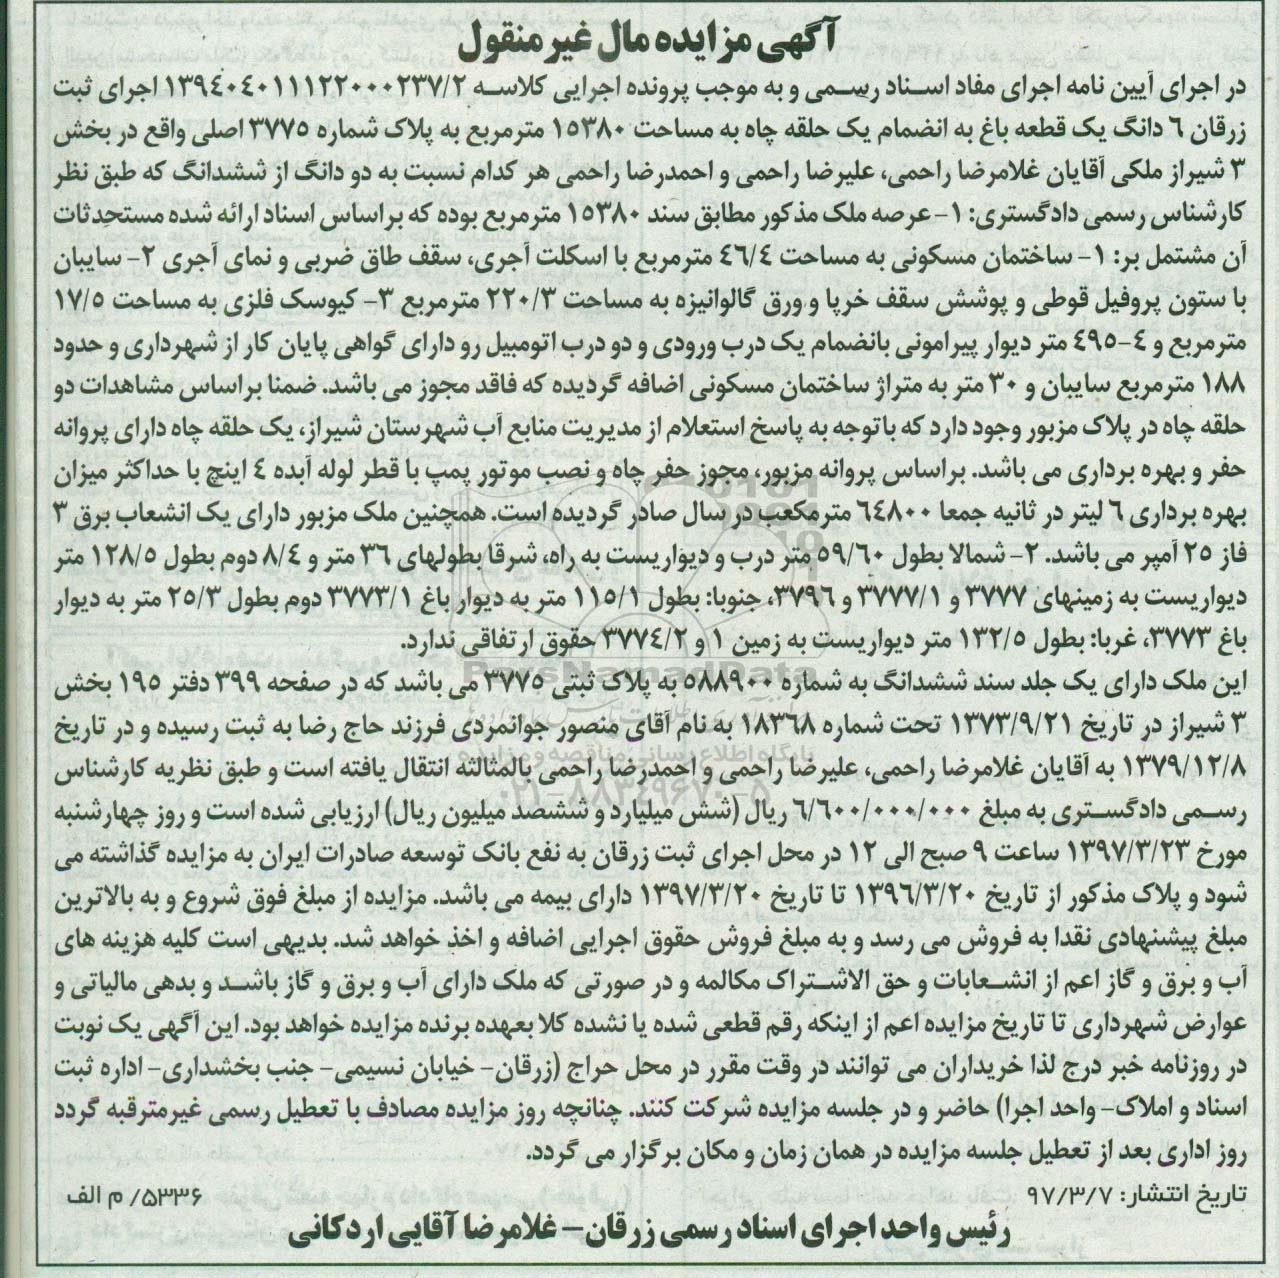 آگهی مزایده مال غیر منقول
در اجرای آیین نامه اجرای مفاد اسناد رسمی و به موجب پرونده اجرایی کلاسه ۱۳۹۴۰۴۰۱۱۱۲۲۰۰۰۲۳۷/۲ اجرای ثبت
زرقان ۶ دانگ یک قطعه باغ به انضمام یک حلقه چاه به مساحت ۱۵۳۸۰ مترمربع به پلاک شماره ۳۷۷۵ اصلی واقع در بخش
۳ شیراز ملکی آقایان غلامرضا راحمی، علیرضا راحمی و احمدرضا راحمی هر کدام نسبت به دو دانگ از ششدانگ که طبق نظر
کارشناس رسمی دادگستری: ۱- عرصه ملک مذکور مطابق سند ۱۵۳۸۰ مترمربع بوده که براساس اسناد ارائه شده مستحدثات
آن مشتمل بر: ۱- ساختمان مسکونی به مساحت ۴۶/۴ مترمربع با اسکلت آجری، سقف طاق ضربی و نمای آجری ۲- سایبان
با ستون پروفیل قوطی و پوشش سقف خرپا و ورق گالوانیزه به مساحت ۲۲۰/۳ مترمربع ۳- کیوسک فلزی به مساحت ۱۷/۵
مترمربع و ۴-۴۹۵ متر دیوار پیرامونی بانضمام یک درب ورودی و دو درب اتومبیل رو دارای گواهی پایان کار از شهرداری و حدود
۱۸۸ مترمربع سایبان و ۳۰ متر به متراژ ساختمان مسکونی اضافه گردیده که فاقد مجوز می باشد. ضمنا براساس مشاهدات دو
حلقه چاه در پلاک مزبور وجود دارد که باتوجه به پاسخ استعلام از مدیریت منابع آب شهرستان شیراز، یک حلقه چاه دارای پروانه
حفر و بهره برداری می باشد. براساس پروانه مزبور، مجوز حفر چاه و نصب موتور پمپ با قطر لوله آبده ۴ اینچ با حداکثر میزان
بهره برداری ۶ لیتر در ثانیه جمعا ۶۴۸۰۰ مترمکعب در سال صادر گردیده است. همچنین ملک مزبور دارای یک انشعاب برق ۳
فاز ۲۵ آمپر می باشد. ۲- شمالا بطول ۵۹/۶۰ متر درب و دیواریست به راه، شرقا بطولهای ۳۶ متر و ۸/۴ دوم بطول ۱۲۸/۵ متر
دیواریست به زمینهای ۳۷۷۷ و ۳۷۷۷/۱ و ۳۷۹۶، جنوبا: بطول ۱۱۵/۱ متر به دیوار باغ ۳۷۷۳/۱ دوم بطول ۲۵/۳ متر به دیوار
باغ ۳۷۷۳، غربا: بطول ۱۳۲/۵ متر دیواریست به زمین ۱ و ۳۷۷۴/۲ حقوق ارتفاقی ندارد.
این ملک دارای یک جلد سند ششدانگ به شماره ۵۸۸۹۰۰ به پلاک ثبتی ۳۷۷۵ می باشد که در صفحه ۳۹۹ دفتر ۱۹۵ بخش
۳ شیراز در تاریخ ۱۳۷۳/۹/۲۱ تحت شماره ۱۸۳۶۸ به نام آقای منصور جوانمردی فرزند حاج رضا به ثبت رسیده و در تاریخ
۱۳۷۹/۱۲/۸ به آقایان غلامرضا راحمی، علیرضا راحمی و احمدرضا راحمی بالمثالثه انتقال یافته است و طبق نظریه کارشناس
رسمی دادگستری به مبلغ ۶/۶۰۰/۰۰۰/۰۰۰ ریال (شش میلیارد و ششصد میلیون ریال) ارزیابی شده است و روز چهارشنبه
مورخ ۱۳۹۷/۳/۲۳ ساعت ۹ صبح الی ۱۲ در محل اجرای ثبت زرقان به نفع بانک توسعه صادرات ایران به مزایده گذاشته می
شود و پلاک مذکور از تاریخ ۱۳۹۶/۳/۲۰ تا تاریخ ۱۳۹۷/۳/۲۰ دارای بیمه می باشد. مزایده از مبلغ فوق شروع و به بالاترین
مبلغ پیشنهادی نقدا به فروش می رسد و به مبلغ فروش حقوق اجرایی اضافه و اخذ خواهد شد. بدیهی است کلیه هزینه های
آب و برق و گاز اعم از انشعابات و حق الاشتراک مکالمه و در صورتی که ملک دارای آب و برق و گاز باشد و بدهی مالیاتی و
عوارض شهرداری تا تاریخ مزایده اعم از اینکه رقم قطعی شده یا نشده کلا بعهده برنده مزایده خواهد بود. این آگهی یک نوبت
در روزنامه خبر درج لذا خریداران می توانند در وقت مقرر در محل حراج (زرقان- خیابان نسیمی- جنب بخشداری- اداره ثبت
اسناد و املاک- واحد اجرا) حاضر و در جلسه مزایده شرکت کنند. چنانچه روز مزایده مصادف با تعطیل رسمی غیرمترقبه گردد
روز اداری بعد از تعطیل جلسه مزایده در همان زمان و مکان برگزار می گردد.
تاریخ انتشار: ۹۷/۳/۷ ۵۳۳۶/ م الف
رئیس واحد اجرای اسناد رسمی زرقان- غلامرضا آقایی اردکانی
ParsNamadData
پایگاه اطلاع رسانی مناقصه و مزایده
۰۲۱-۸۸۳۴۹۶۷۰-۵